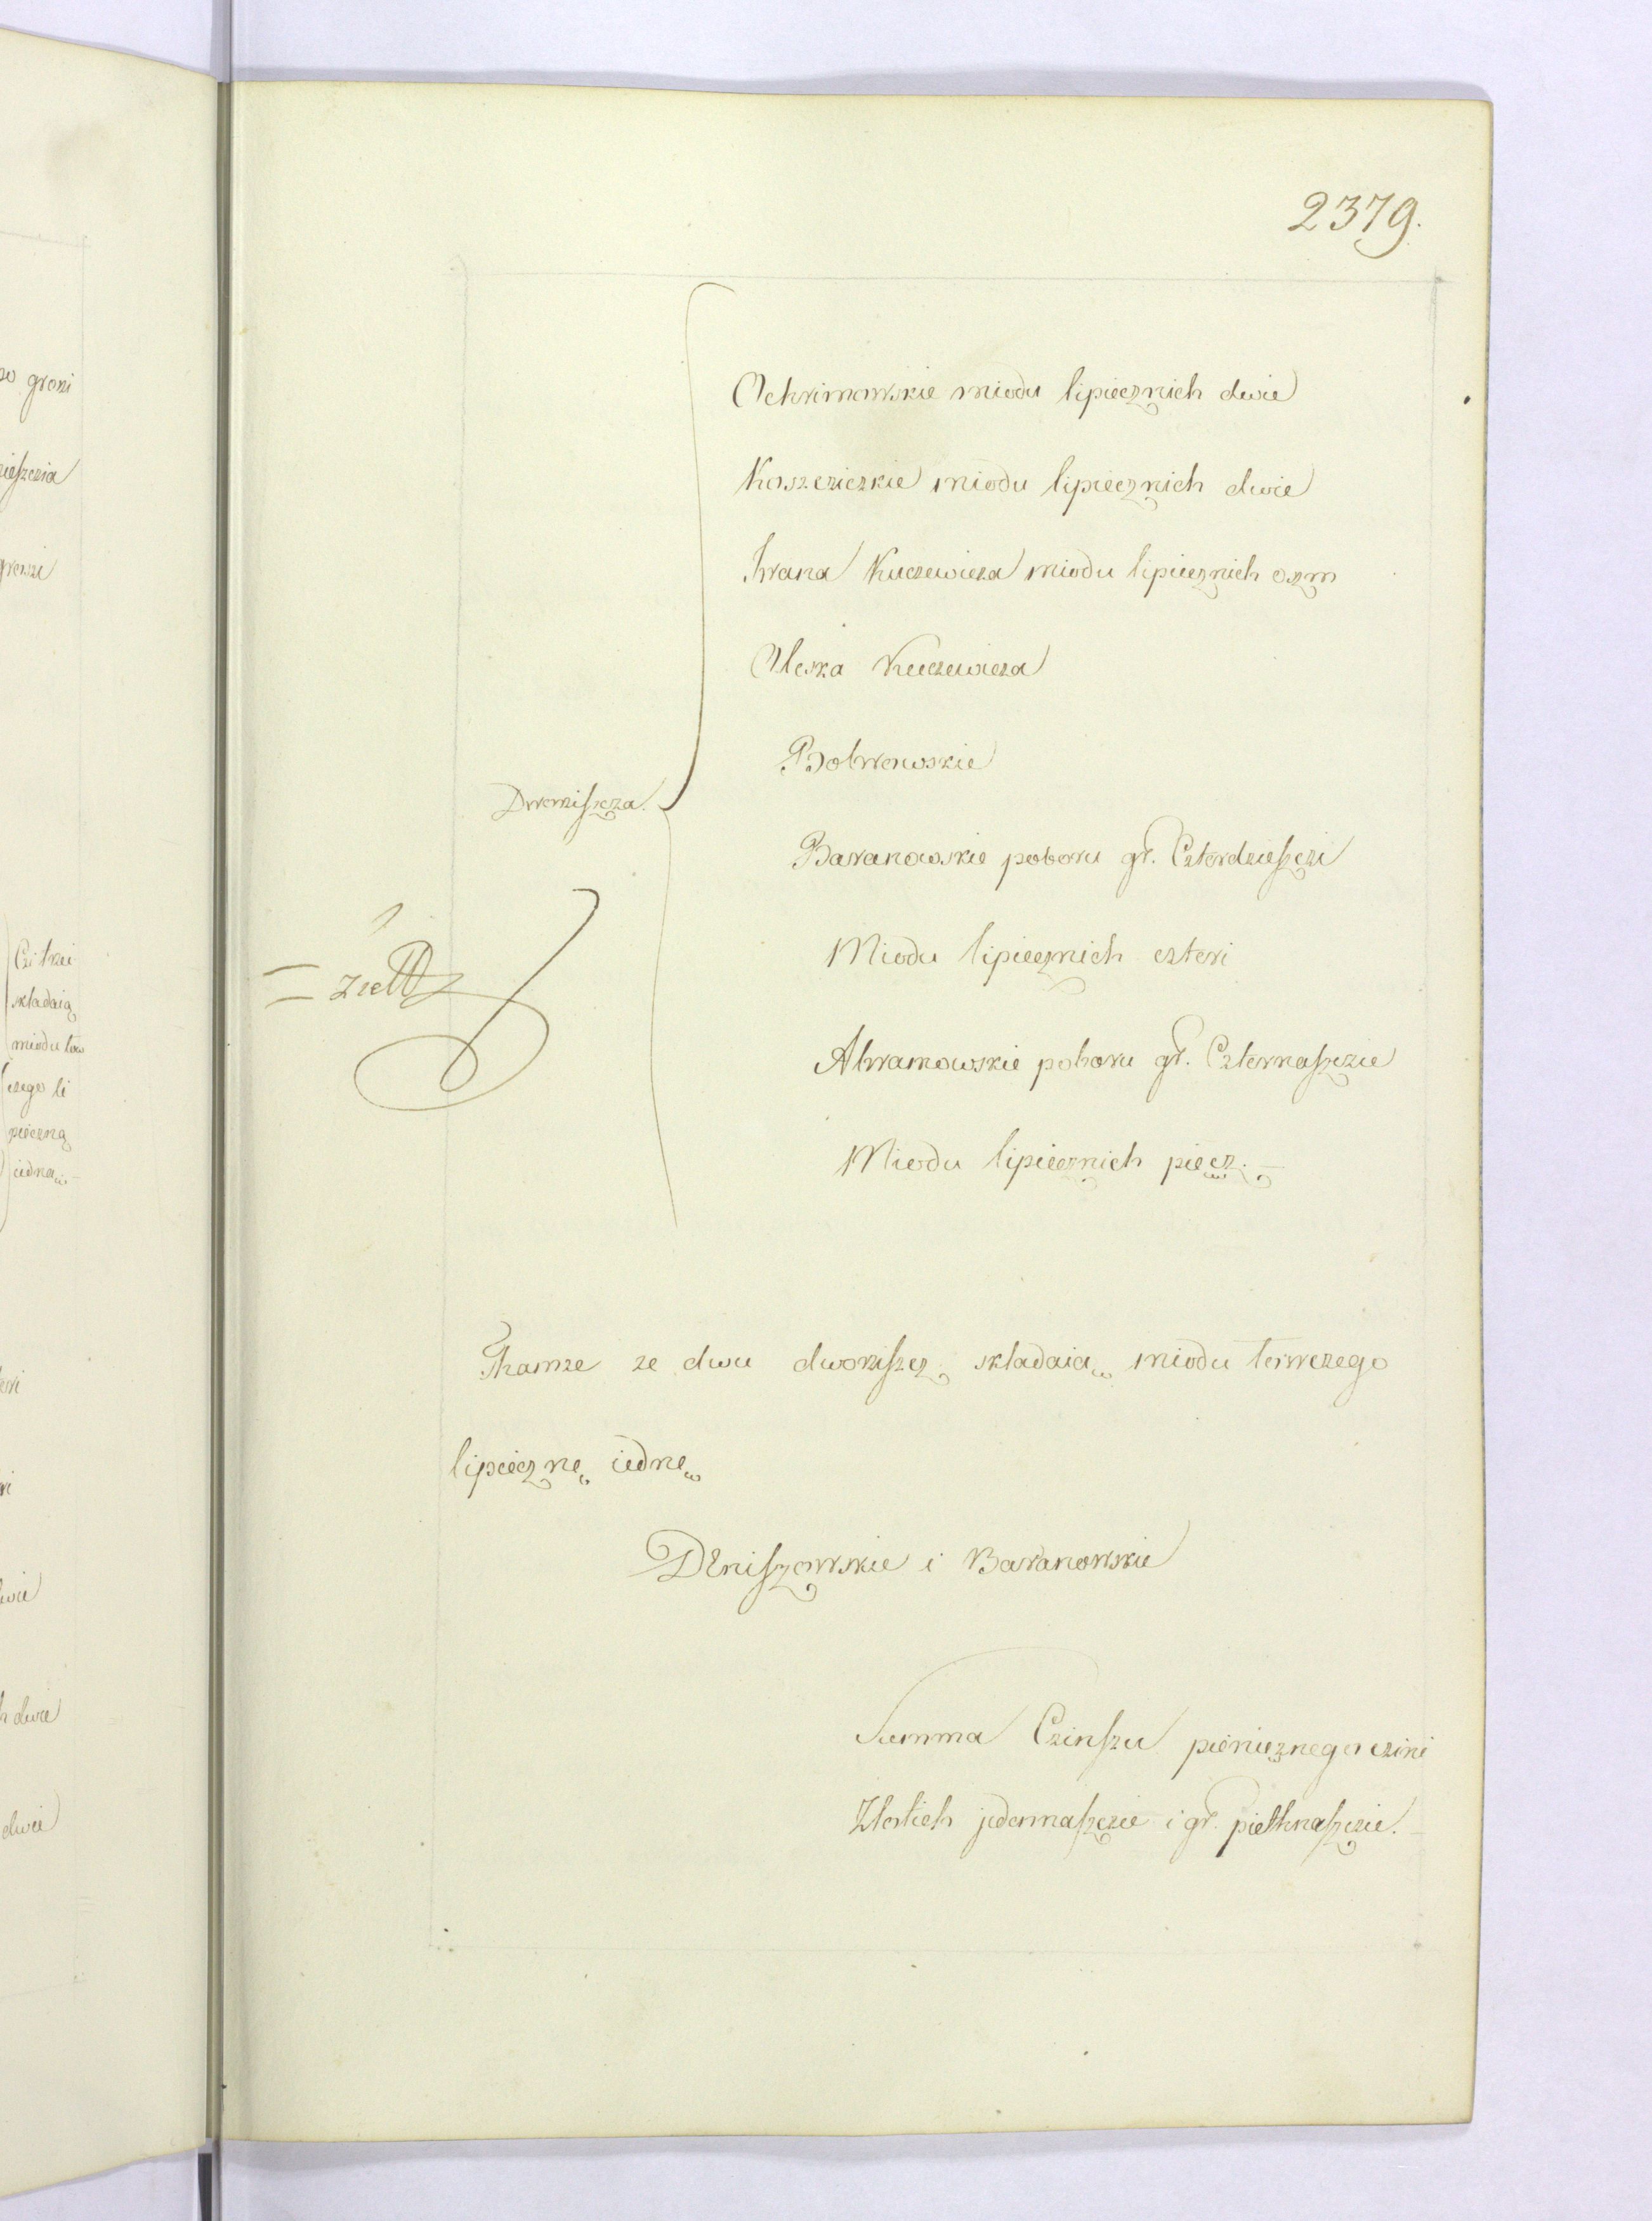 2379.
Ochrimowskie miodu lipiecznich dwie
Koszcziczkie miodu lipiecznich dwie
Iwana Kuczewicza miodu lipiecznich oszm
Oleska Kuczewicza
Bobrowskie
Dworziszcza.
Baranowskie poboru gr. Czterdzieszczi
Miodu lipiecznich czteri
Abramowskie poboru gr. Czternaszczie
Miodu lipiecznich pięcz.
Thamze ze dwu dworziszcz składaią miodu terwczego
lipiecznę iednę
Dzniszowskie i Baranowskie
Summa Czinszu pienieznego czini
Złotich jedennaszczie i gr. piethnaszczie.
grosi
Czi trzi
składaią
miodu
czego li
pieczną
iedną
dwie
dwie
dwie